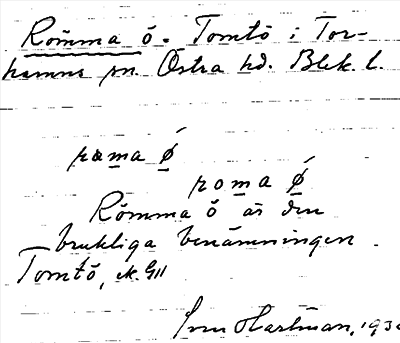 Römma ö. Tomtö i Tor-
hamns sn. Östra hd. Blek. l.
Römma ö är den
brukliga benämningen.
Tomtö, ek. G11
Hartman, 193